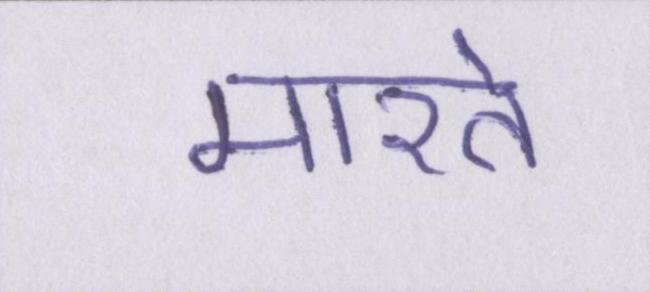 मारते